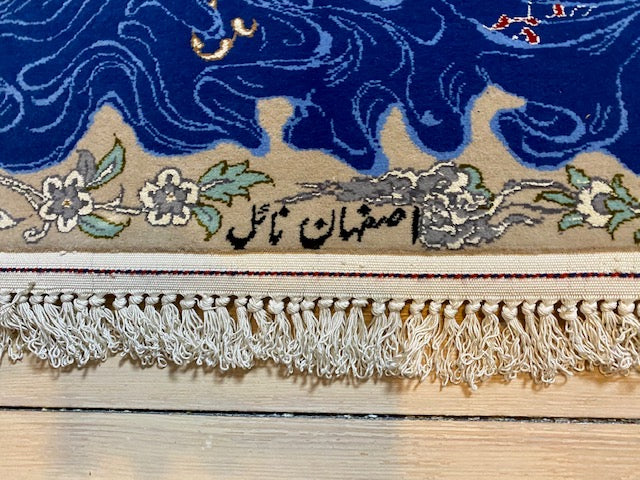 اصفهان نائل